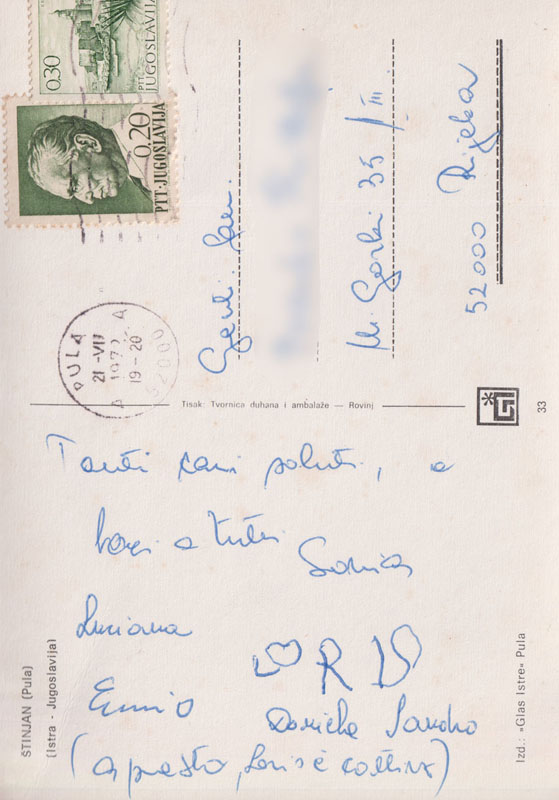 0.30
PTT JUGOSLAVIJA
0,20
PTT-JUGOSLAVIJA
PULA
21 -VII
1972
19-20
A
A
52000
Gent.
M. Gorki 35/III
52000 Rijeka
Tisak: Tvornica duhana i ambalaže — Rovinj
33
Tanti cari saluti, e
baci a tutti
Sonia
Luciana
Ennio
Sandro
(a presto,
ŠTINJAN (Pula)
(Istra - Jugoslavija)
Izd.: »Glas Istre« Pula